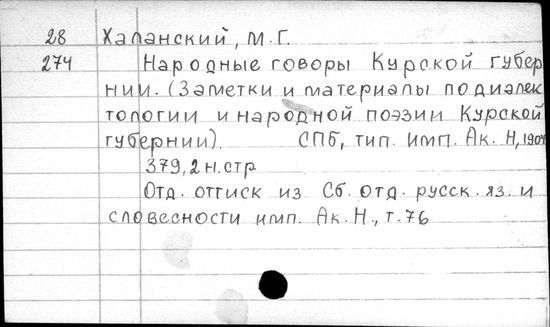 28 Халанский, М.Г.
274 Народные говоры Курской губер
нии. (Заметки и материалы по диалек
тологии и народной поэзии Курской
губернии). СПб, тип. имп. Ак. Н, 1904
379, 2 н. стр
Отд. оттиск из Сб. отд. русск. яз. и
словесности имп. Ак. Н., т. 76